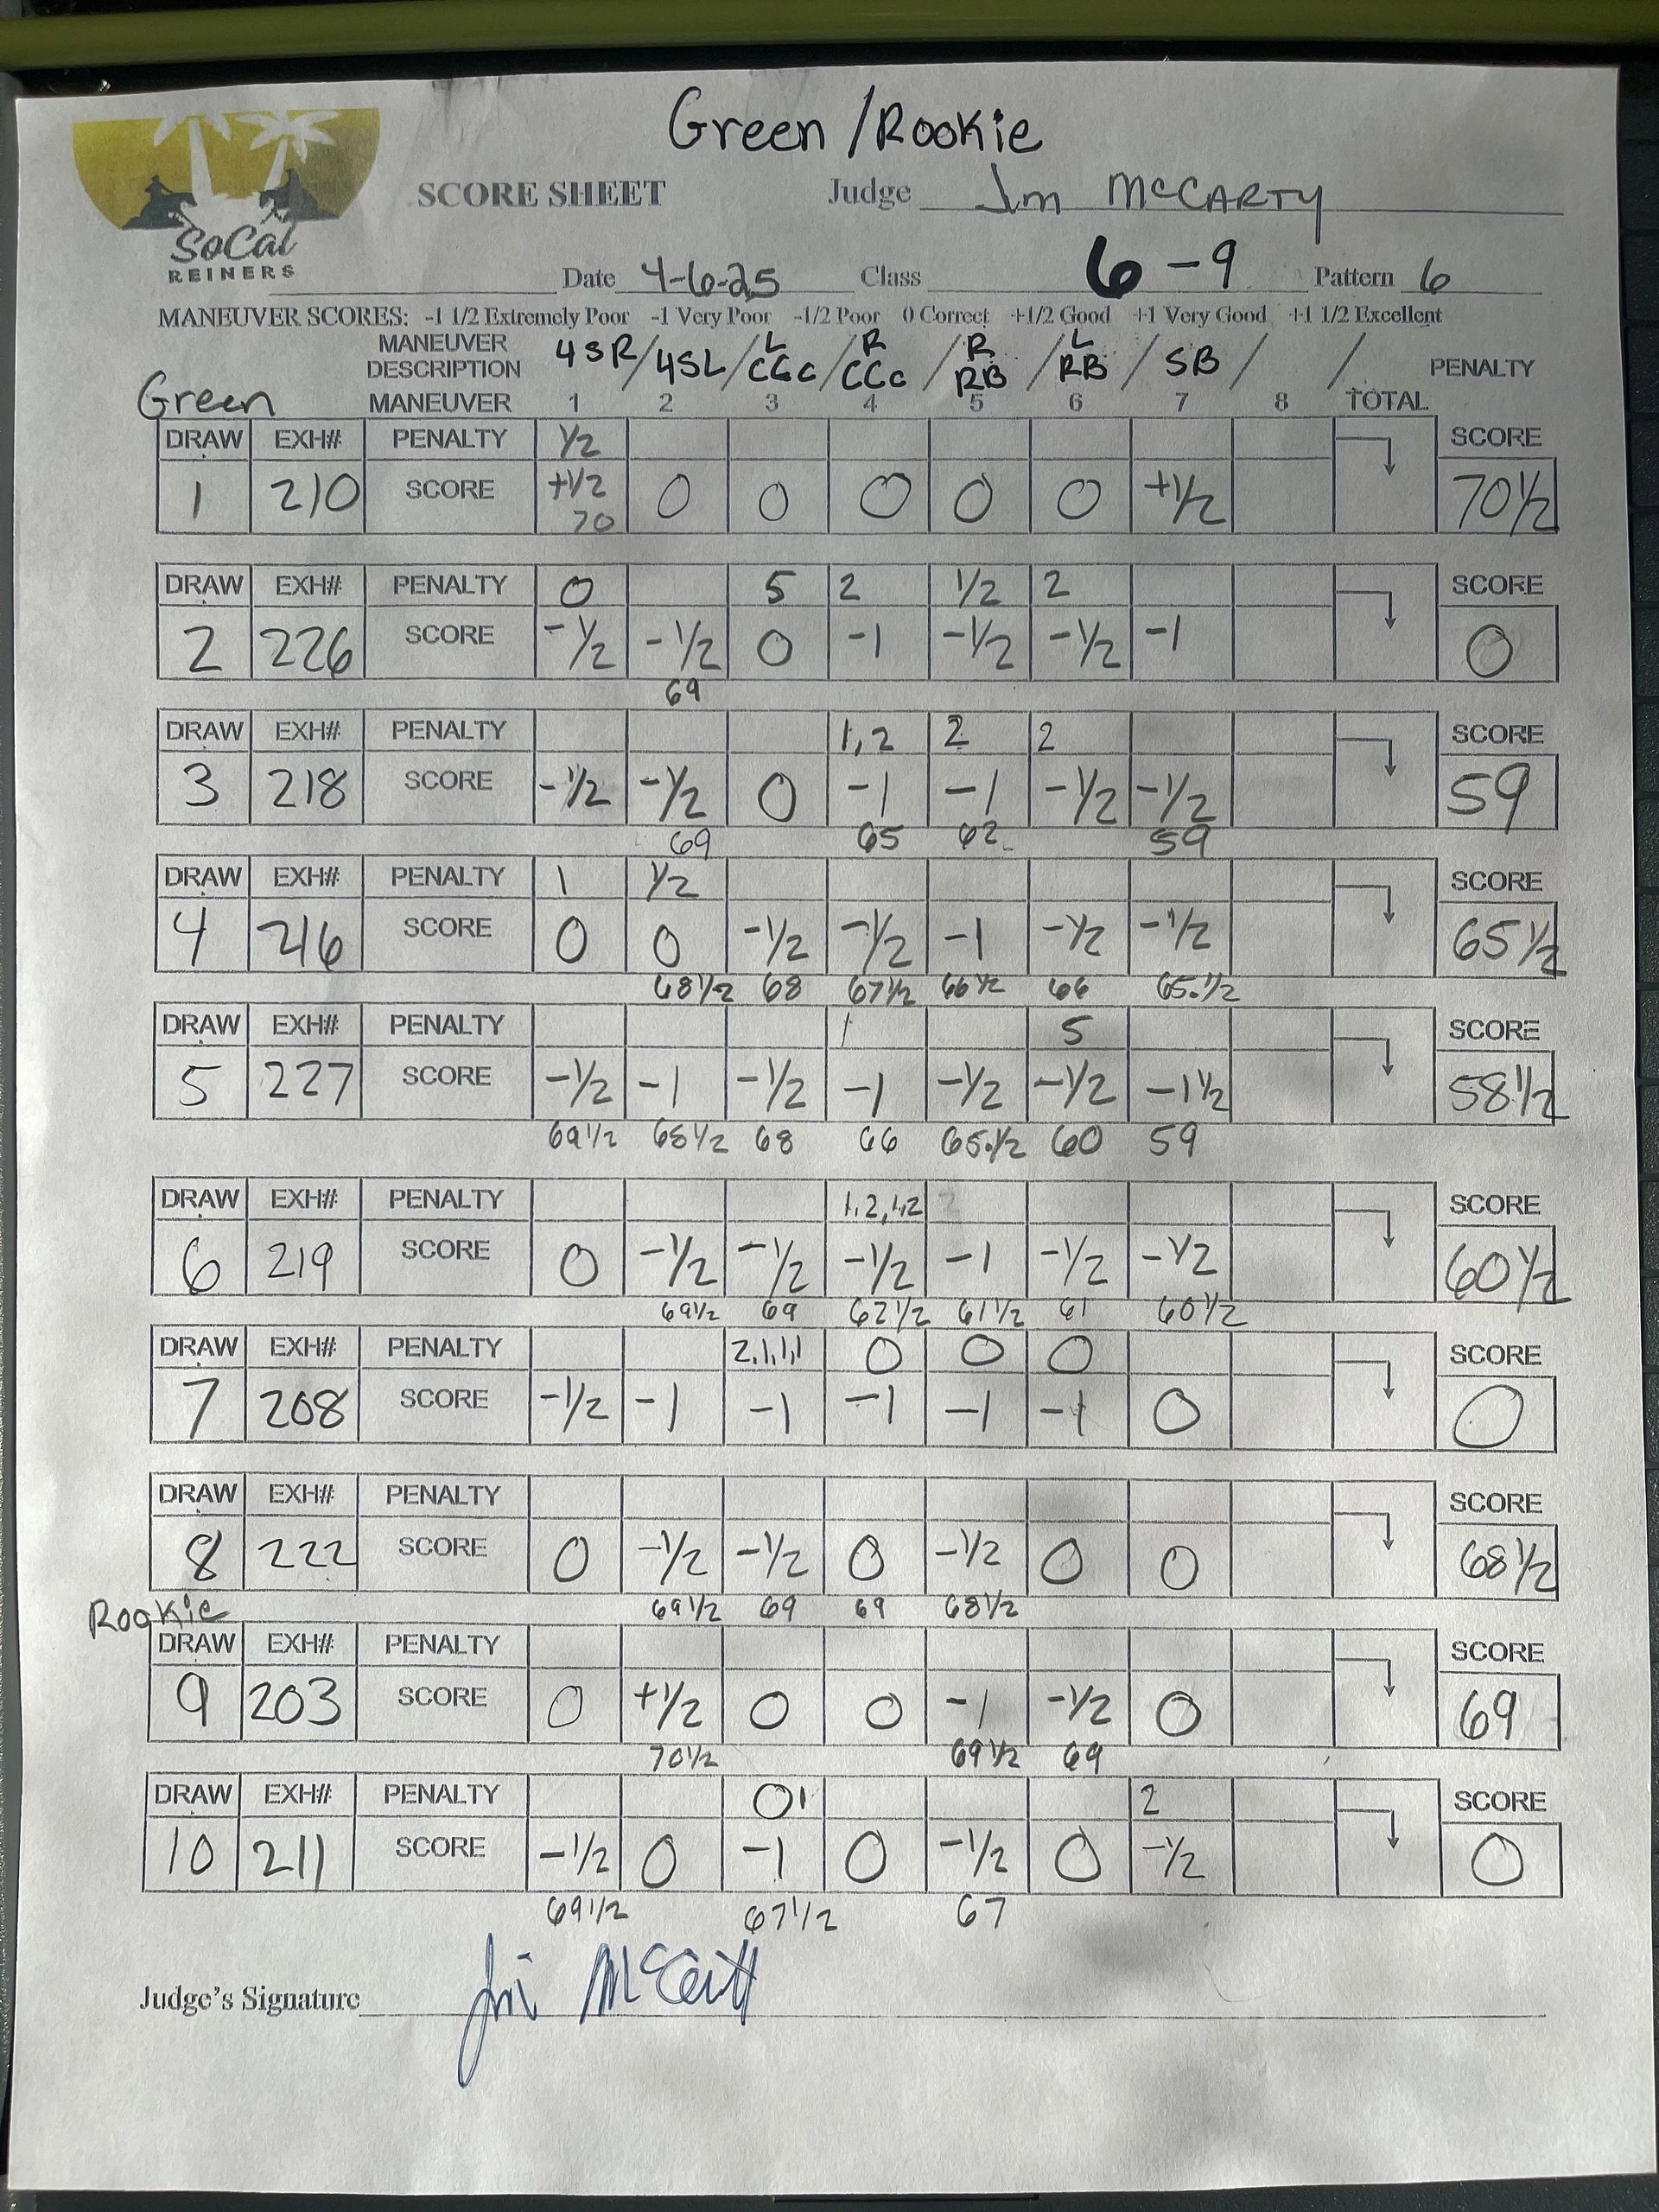 Green / Rookie
SoCal
REINERS
SCORE SHEET Judge Jim McCARTY
Date 4-6-25 Class 6-9 Pattern 6
MANEUVER SCORES: -1 1/2 Extremely Poor -1 Very Poor -1/2 Poor 0 Correct +1/2 Good +1 Very Good +1 1/2 Excellent
MANEUVER DESCRIPTION 4SR / 4SL / L CCc / R CCc / R RB / L RB / SB / / PENALTY
Green MANEUVER 1 2 3 4 5 6 7 8 TOTAL
DRAW EXH# PENALTY 1/2 SCORE
1 210 SCORE +1/2 0 0 0 0 0 +1/2 70 1/2
70
DRAW EXH# PENALTY 0 5 2 1/2 2 SCORE
2 226 SCORE -1/2 -1/2 0 -1 -1/2 -1/2 -1 0
69
DRAW EXH# PENALTY 1,2 2 2 SCORE
3 218 SCORE -1/2 -1/2 0 -1 -1 -1/2 -1/2 59
69 65 62 59
DRAW EXH# PENALTY 1 1/2 SCORE
4 216 SCORE 0 0 -1/2 -1/2 -1 -1/2 -1/2 65 1/2
68 1/2 68 67 1/2 66 1/2 66 65.1/2
DRAW EXH# PENALTY 1 5 SCORE
5 227 SCORE -1/2 -1 -1/2 -1 -1/2 -1/2 -1 1/2 58 1/2
69 1/2 68 1/2 68 66 65.1/2 60 59
DRAW EXH# PENALTY 1,2,1,2 SCORE
6 219 SCORE 0 -1/2 -1/2 -1/2 -1 -1/2 -1/2 60 1/2
69 1/2 69 62 1/2 61 1/2 61 60 1/2
DRAW EXH# PENALTY 2,1,1,1 0 0 0 SCORE
7 208 SCORE -1/2 -1 -1 -1 -1 -1 0 0
DRAW EXH# PENALTY SCORE
8 222 SCORE 0 -1/2 -1/2 0 -1/2 0 0 68 1/2
69 1/2 69 69 68 1/2
Rookie
DRAW EXH# PENALTY SCORE
9 203 SCORE 0 +1/2 0 0 -1 -1/2 0 69
70 1/2 69 1/2 69
DRAW EXH# PENALTY 01 2 SCORE
10 211 SCORE -1/2 0 -1 0 -1/2 0 -1/2 0
69 1/2 67 1/2 67
Judge's Signature Jim McCarty